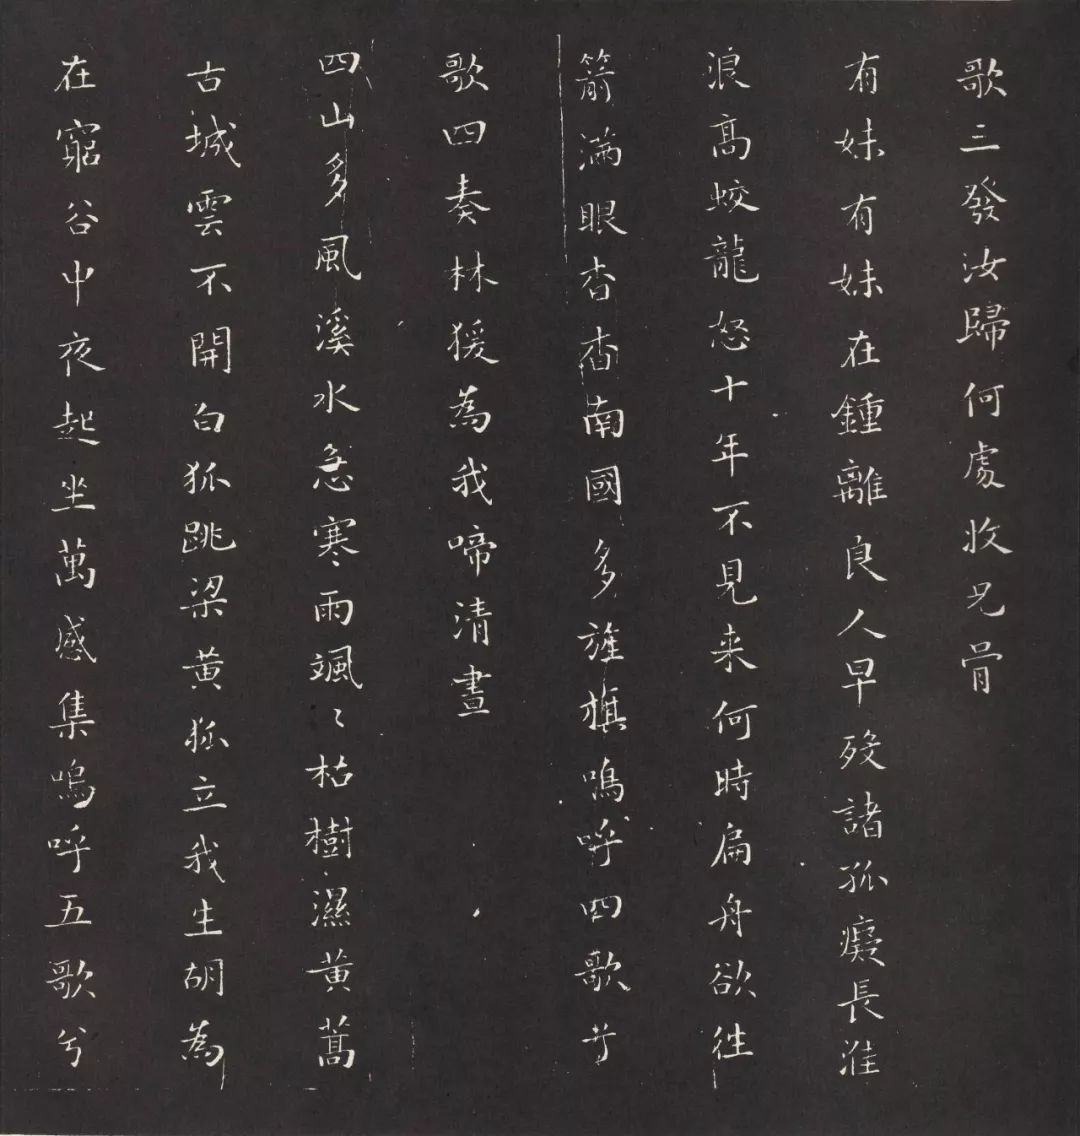 歌三發汝歸何處收兄骨
有妹有妹在鍾離良人早歿諸孤癡長淮
浪高蛟龍怒十年不見来何時扁舟欲往
箭滿眼杳杳南國多旌旗嗚呼四歌兮
歌四奏林猨為我啼清晝
四山多風溪水急寒雨颯〻枯樹濕黃蒿
古城雲不開白狐跳梁黃狐立我生胡為
在窮谷中夜起坐萬感集嗚呼五歌兮